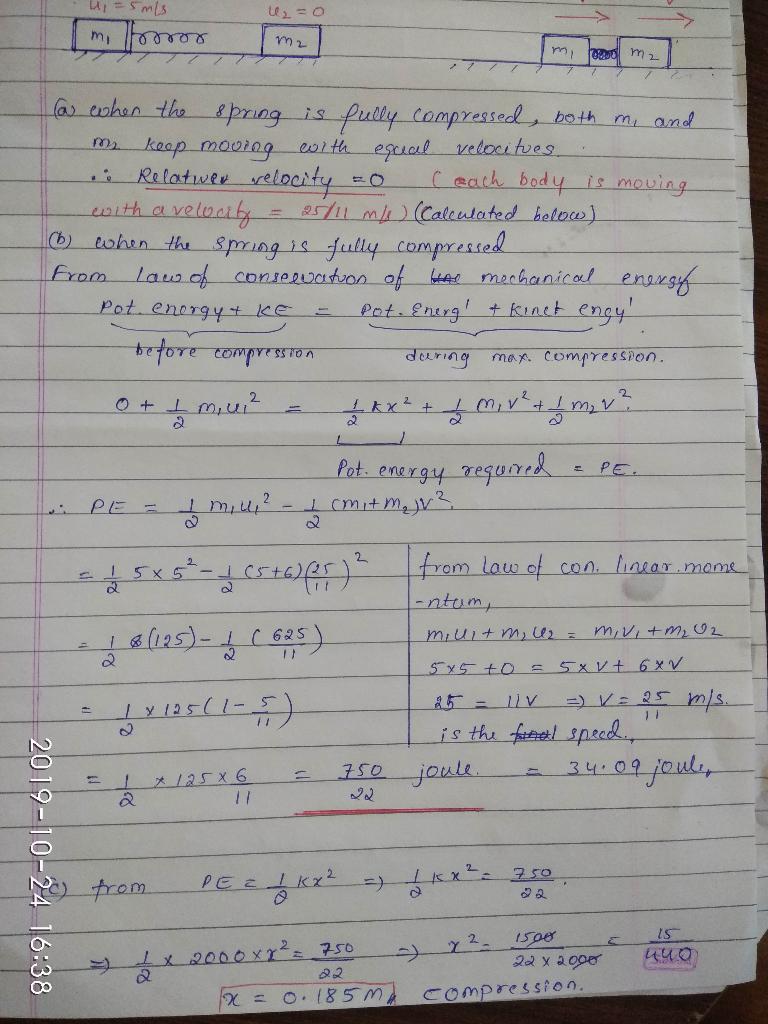 u₁ = 5 m/s
u₂ = 0
m₁
m₂
m₁
m₂
(a) when the spring is fully compressed, both m₁ and
m₂ keep moving with equal velocitves.
∴ Relativer velocity = 0 ( each body is moving
with a velocity = 25/11 m/s ) (Calculated below)
(b) when the spring is fully compressed
From law of conservation of mechanical energy
Pot. energy + KE = Pot. Energ' + Kinet engy'
before compression
during max. compression.
0 + 1/2 m₁u₁² = 1/2 kx² + 1/2 m₁v² + 1/2 m₂v².
Pot. energy required = PE.
∴ PE = 1/2 m₁u₁² - 1/2 (m₁+m₂)v².
= 1/2 5×5² - 1/2 (5+6)(25/11)²
= 1/2 (125) - 1/2 (625/11)
= 1/2 × 125 (1 - 5/11)
from law of con. linear. mome
-ntum,
m₁u₁ + m₂u₂ = m₁v₁ + m₂v₂
5×5 + 0 = 5×v + 6×v
25 = 11v ⇒ v = 25/11 m/s.
is the final speed.
= 1/2 × 125×6/11 = 750/22 joule. = 34.09 joule,
(c) from PE = 1/2 kx² ⇒ 1/2 kx² = 750/22.
⇒ 1/2 × 2000 × x² = 750/22 ⇒ x² = 1500/22×2000 = 15/440
x = 0.185 m, compression.
2019-10-24 16:38